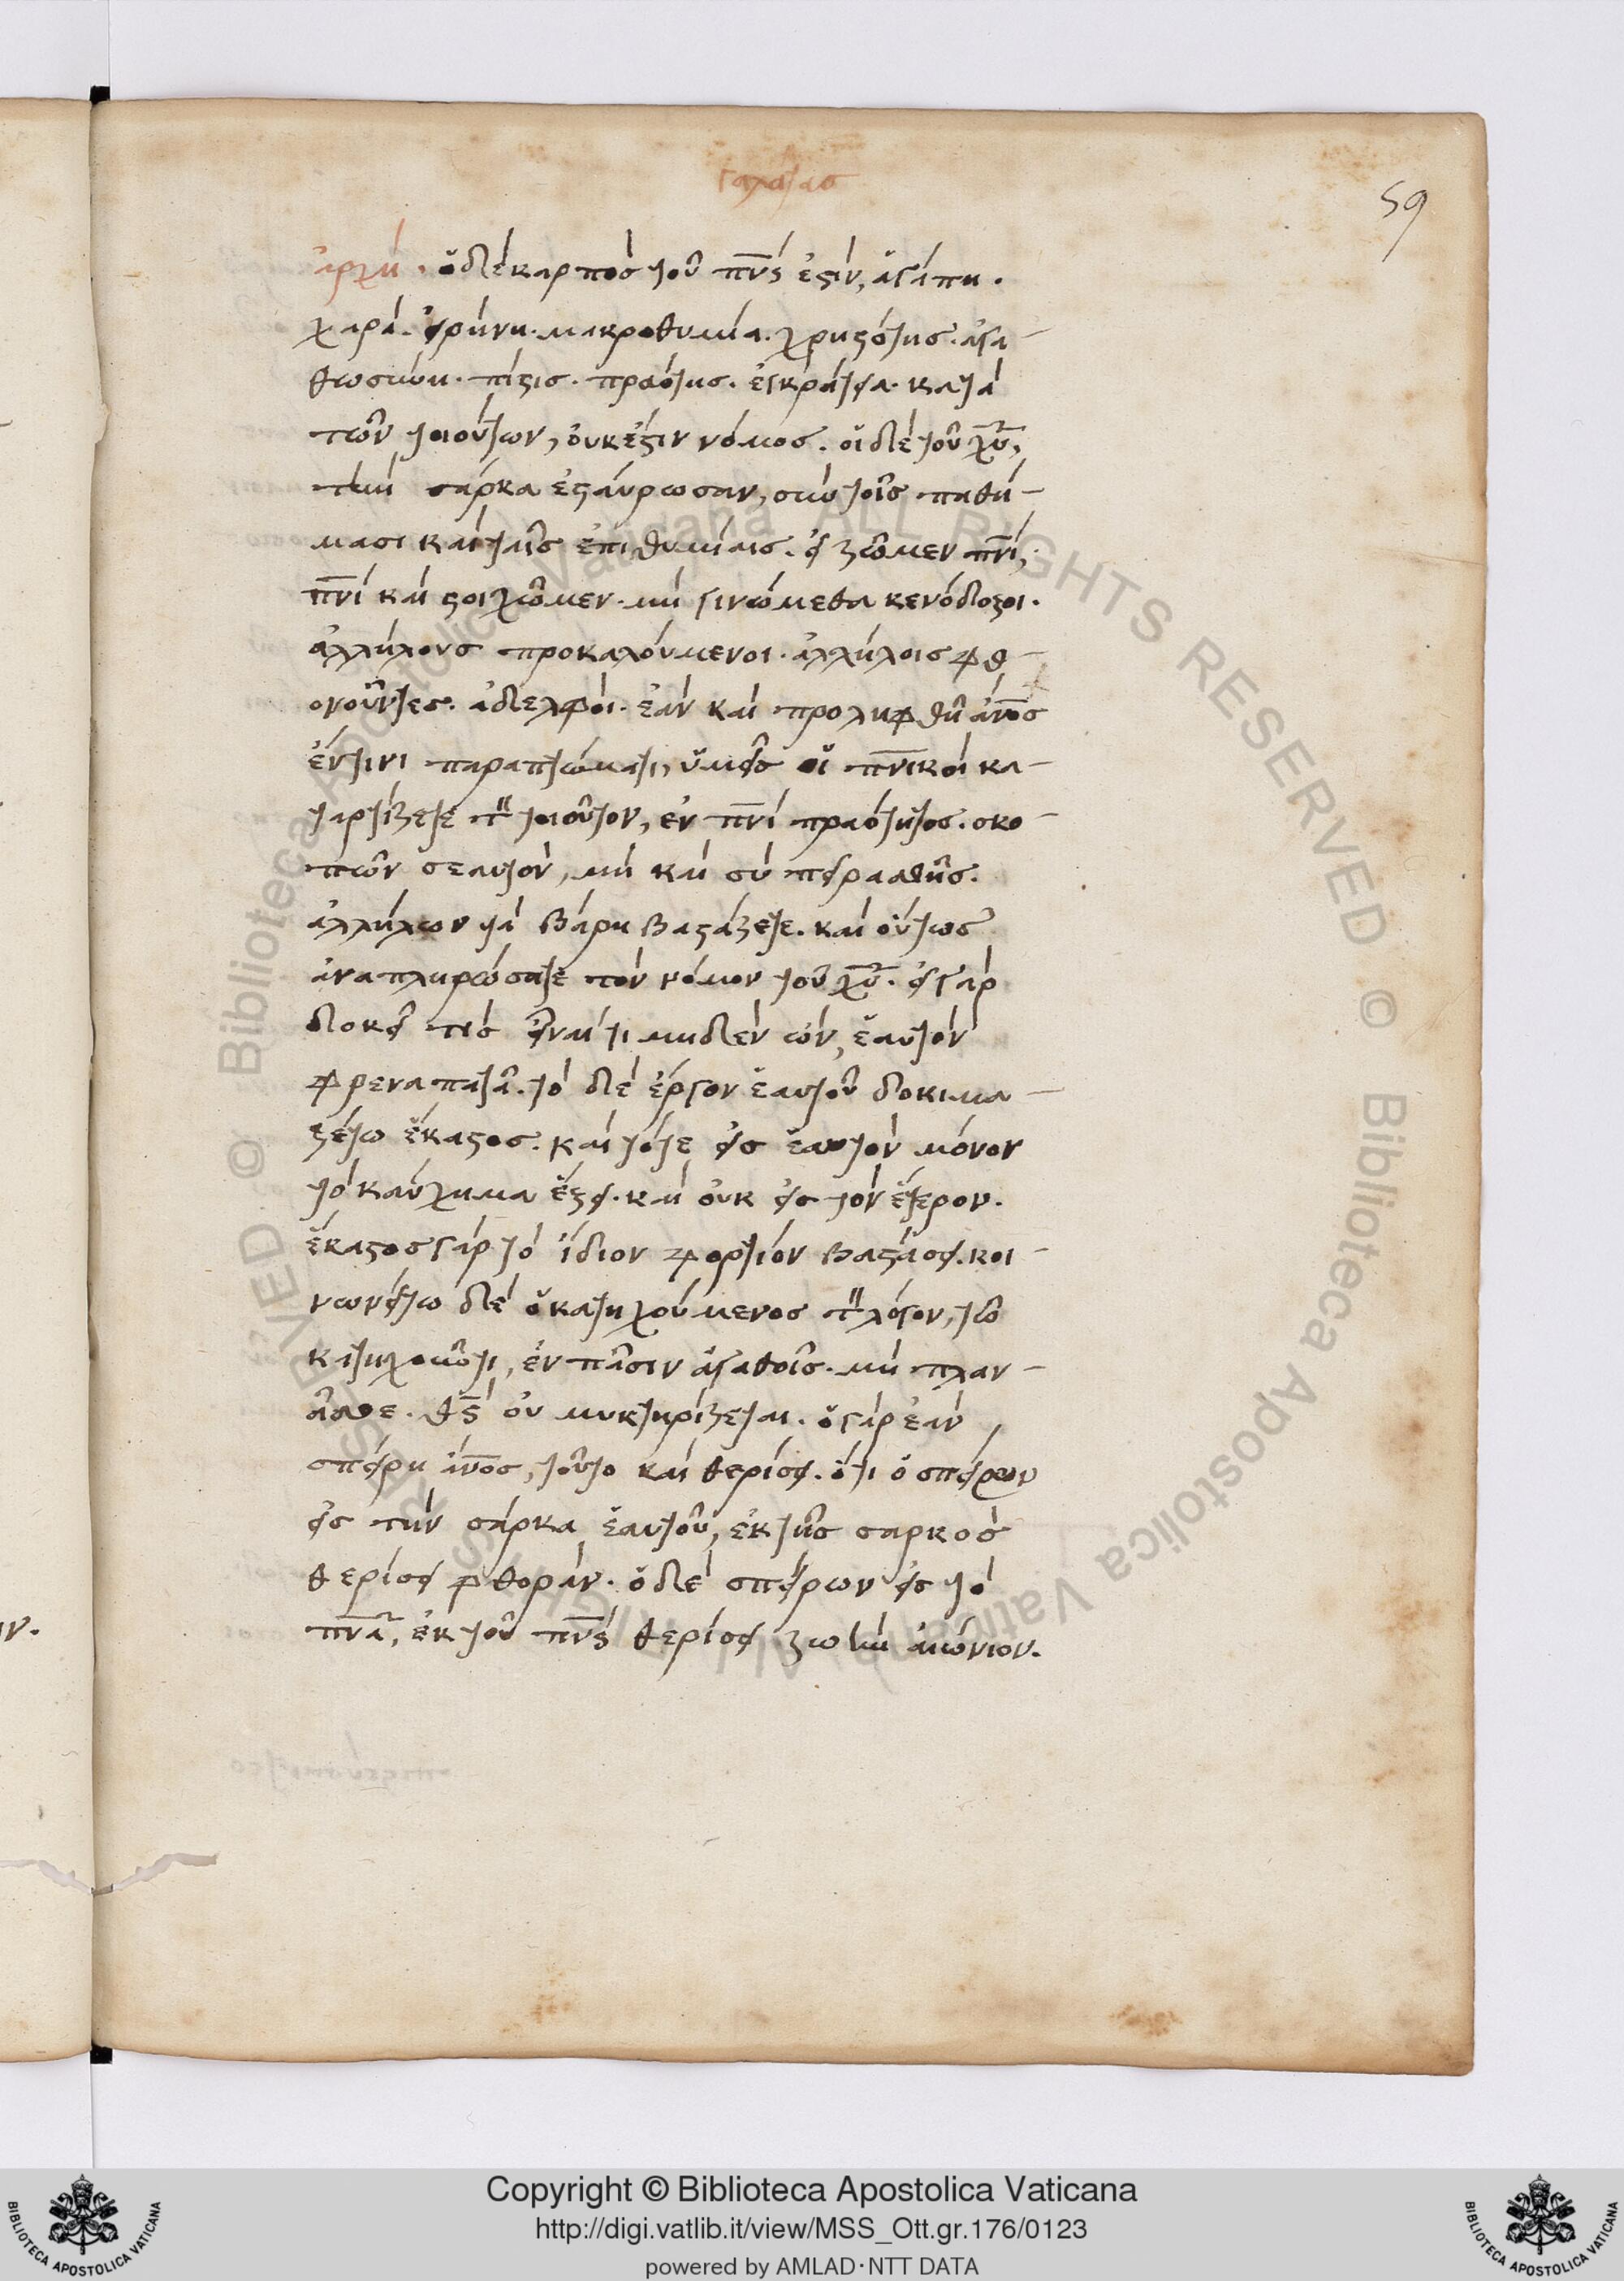 Γαλάτας
59
ἀρχή. ὁ δὲ καρπὸς τοῦ πν̅ς ἐστίν, ἀγάπη.
χαρά. εἰρήνη. μακροθυμία. χρηστότης. ἀγα-
θωσύνη. πίστις. πραότης. ἐγκράτεια. κατὰ
τῶν τοιούτων, οὐκ ἔστιν νόμος. οἱ δὲ τοῦ χ̅υ̅,
τὴν σάρκα ἐσταύρωσαν, σὺν τοῖς παθή-
μασι καὶ ταῖς ἐπιθυμίαις. εἰ ζῶμεν πν̅ι,
πν̅ι καὶ στοιχῶμεν. μὴ γινώμεθα κενόδοξοι.
ἀλλήλους προκαλούμενοι. ἀλλήλοις φθ-
ονοῦντες. ἀδελφοί. ἐὰν καὶ προληφθῆ ἀν̅ο̅ς
ἔν τινι παραπτώματι, ὑμεῖς οἱ πν̅ικοὶ κα-
ταρτίζετε τὸν τοιοῦτον, ἐν πν̅ι πραότητος. σκο-
πῶν σεαυτόν, μὴ καὶ σὺ πειρασθῆς.
ἀλλήλων τὰ βάρη βαστάζετε. καὶ οὕτως
ἀναπληρώσατε τὸν νόμον τοῦ χ̅υ̅. εἰ γὰρ
δοκεῖ τις εἶναί τι μηδὲν ὤν, ἑαυτὸν
φρεναπατᾶ. τὸ δὲ ἔργον ἑαυτοῦ δοκιμα-
ζέτω ἕκαστος. καὶ τότε εἰς ἑαυτὸν μόνον
τὸ καύχημα ἕξει. καὶ οὐκ εἰς τὸν ἕτερον.
ἕκαστος γὰρ τὸ ἴδιον φορτίον βαστάσει. κοι-
νωνείτω δὲ ὁ κατηχούμενος τὸν λόγον, τῶ
κατηχοῦντι, ἐν πᾶσιν ἀγαθοῖς. μὴ πλαν-
ᾶσθε. θ̅ς̅ οὐ μυκτηρίζεται. ὃ γὰρ ἐὰν
σπείρη ἀν̅ο̅ς, τοῦτο καὶ θερίσει. ὅτι ὁ σπείρων
εἰς τὴν σάρκα ἑαυτοῦ, ἐκ τῆς σαρκὸς
θερίσει φθοράν. ὁ δὲ σπείρων εἰς τὸ
πν̅α, ἐκ τοῦ πν̅ς θερίσει ζωὴν αἰώνιον.
Copyright © Biblioteca Apostolica Vaticana
http://digi.vatlib.it/view/MSS_Ott.gr.176/0123
powered by AMLAD·NTT DATA
BIBLIOTECA APOSTOLICA VATICANA
BIBLIOTECA APOSTOLICA VATICANA
© Biblioteca Apostolica Vaticana ALL RIGHTS RESERVED © Biblioteca Apostolica Vaticana ALL RIGHTS RESERVED